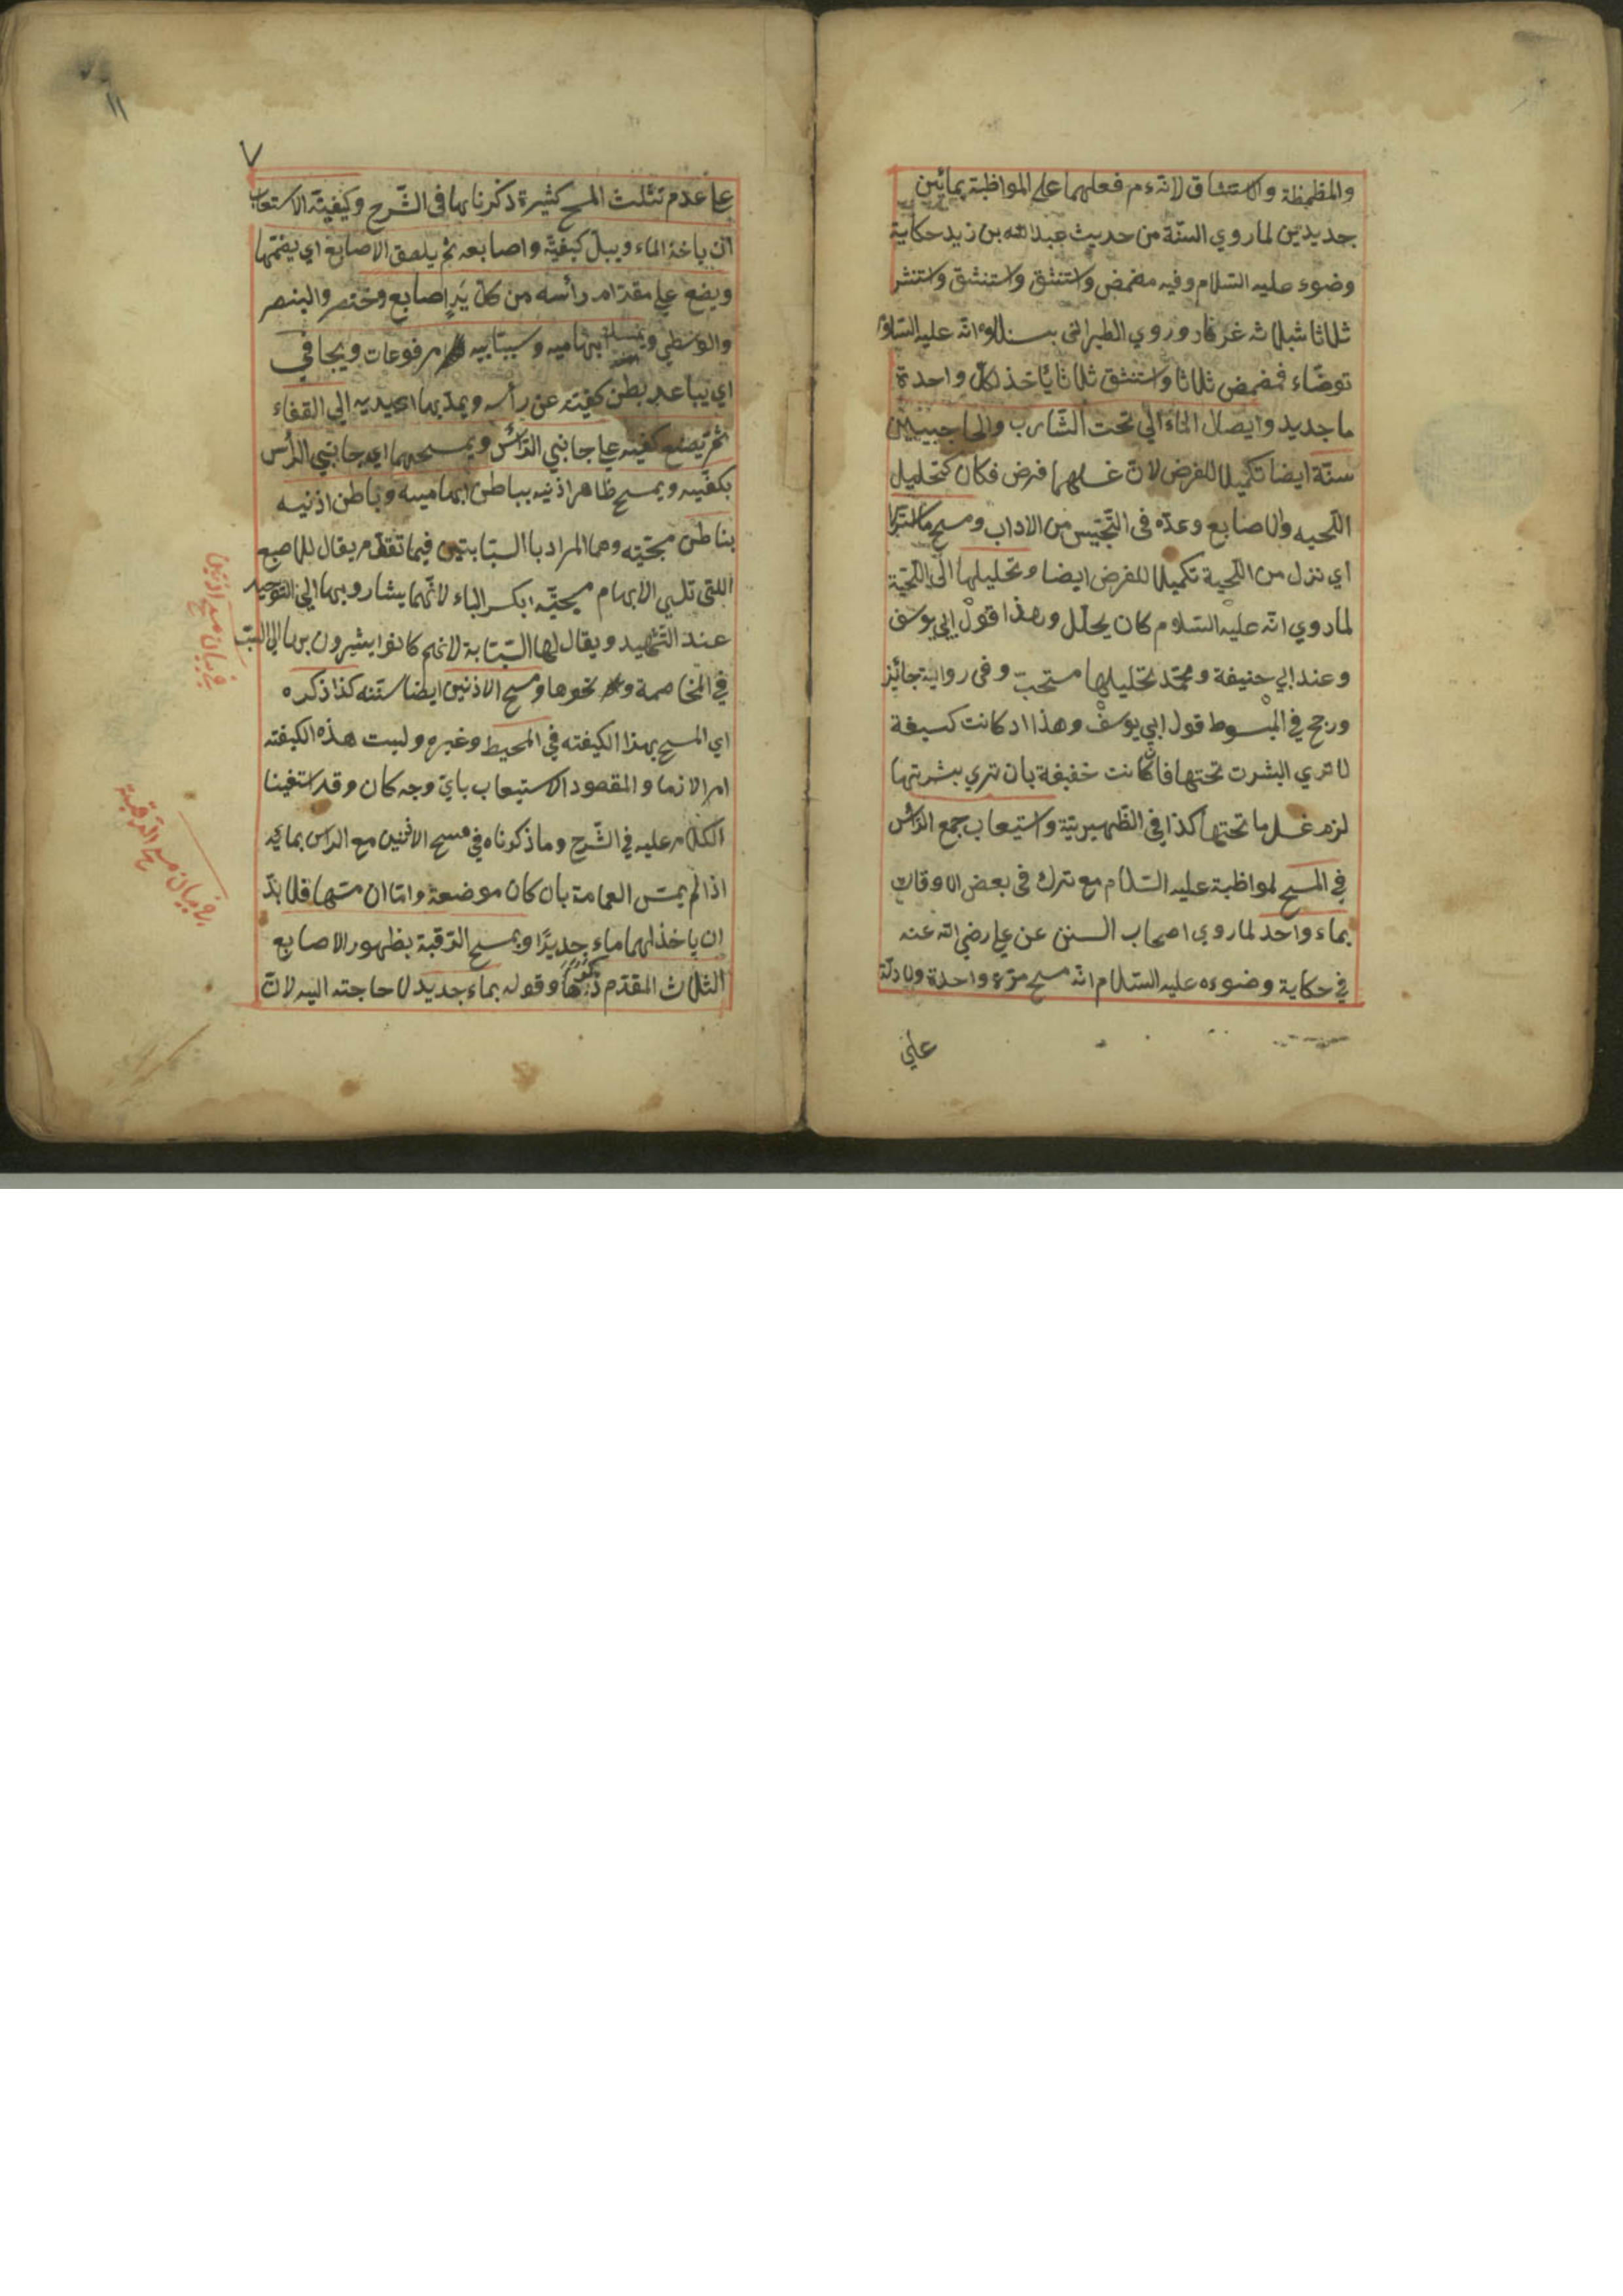 والمظمظة والاستنشاق لانه ءم فعلهما على المواظبة بمائين
جديدين لما روي الستة من حديث عبد الله بن زيد حكاية
وضوء عليه السلام وفيه مضمض واستنشق واستنشق واستنثر
ثلاثا بثلاثه غرفات وروي الطبراني بسنده انه عليه السلام
توضاء فمضمض ثلاثا واستنشق ثلاثا يأخذ لكل واحدة
ما جديد وايصال الماء الي تحت الشارب والحاجبين
سنة ايضا تكميلا للفرض لان غسلهما فرض فكان كتحليل
اللحيه والاصابع وعده في التجنيس من الاداب ومسح ما استرسل
اي نزل من اللحية تكميلا للفرض ايضا وتخليلها اي اللحية
لما روي انه عليه السلام كان يخلل وهذا قول ابي يوسف
وعند ابي حنيفة ومحمد تخليلها مستحب وفي رواية جائز
ورجح في المبسوط قول ابي يوسف وهذا اذ كانت كسيفة
لا تري البشرت تحتها فان كانت خفيفة بان تري بشرتها
لزم غسل ما تحتها كذا في الظهيرية واستيعاب جمع الرأس
في المسح لمواظبة عليه السلام مع ترك في بعض الاوقات
بماء واحد لما روي اصحاب السنن عن علي رضي الله عنه
في حكاية وضوءه عليه السلام انه مسح مرة واحدة ولادلة
علي
١١
٧
علي عدم تثلث المسح كثيرة ذكرناها في الشرح وكيفيته الاستعاب
ان ياخذ الماء ويبل كفيه واصابعه ثم يلصق الاصابع اي يضمها
ويضع علي مقدام رأسه من كل يد اصابع وخنصر والبنصر
والوسطي ويمسك ابهاميه وسبتابيه مرفوعات ويجافي
اي يباعد بطن كفيته عن رأسه ويمد بهما اي يديه الي القفاء
ثم يضع كفيه علي جانبي الرأس ويمسحهما اي جانبي الرأس
بكفيه ويمسح ظاهر اذنيه بباطن ابهاميه وباطن اذنيه
بباطن مسبحتيه وهما المراد با السبابتين فيما تقدم يقال للاصبع
اللتي تلي الابهام مسبحة بكسر الباء لانهما يشار بها الي التوحيد
عند التشهيد ويقال لها السبابة لانهم كانوا يشيرون بها الي السب
في المخاصمة ونحوها ومسح الاذنين ايضا سنه كذا ذكره
اي المسح بهذا الكيفته في المحيط وغيره وليست هذه الكيفته
امر لازما والمقصود الاستيعاب باي وجه كان وقد استفينا
الكلام عليه في الشرح وما ذكرناه في مسح الاذنين مع الراس بمائه
اذا لم يمس العمامة بان كان موضعة واما ان مسها فلا بد
ان ياخذ لهما ماء جديدا ويمسح الرقبة بظهور الاصابع
الثلاث المقدم ذكرها وقوله بماء جديد لا حاجته اليه لان
في بيان مسح اذنين
في بيان مسح الرقبة